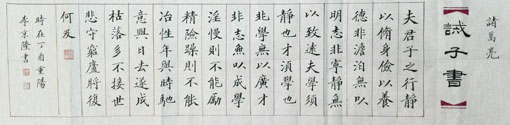 諸葛亮
誡子書
夫君子之行靜
以脩身儉以養
德非澹泊無以
明志非寧靜無
以致遠夫學須
靜也才須學也
非學無以廣才
非志無以成學
淫慢則不能勵
精險躁則不能
冶性年與時馳
意與日去遂成
枯落多不接世
悲守窮廬將復
何及
時在丁酉重陽
李京隆書